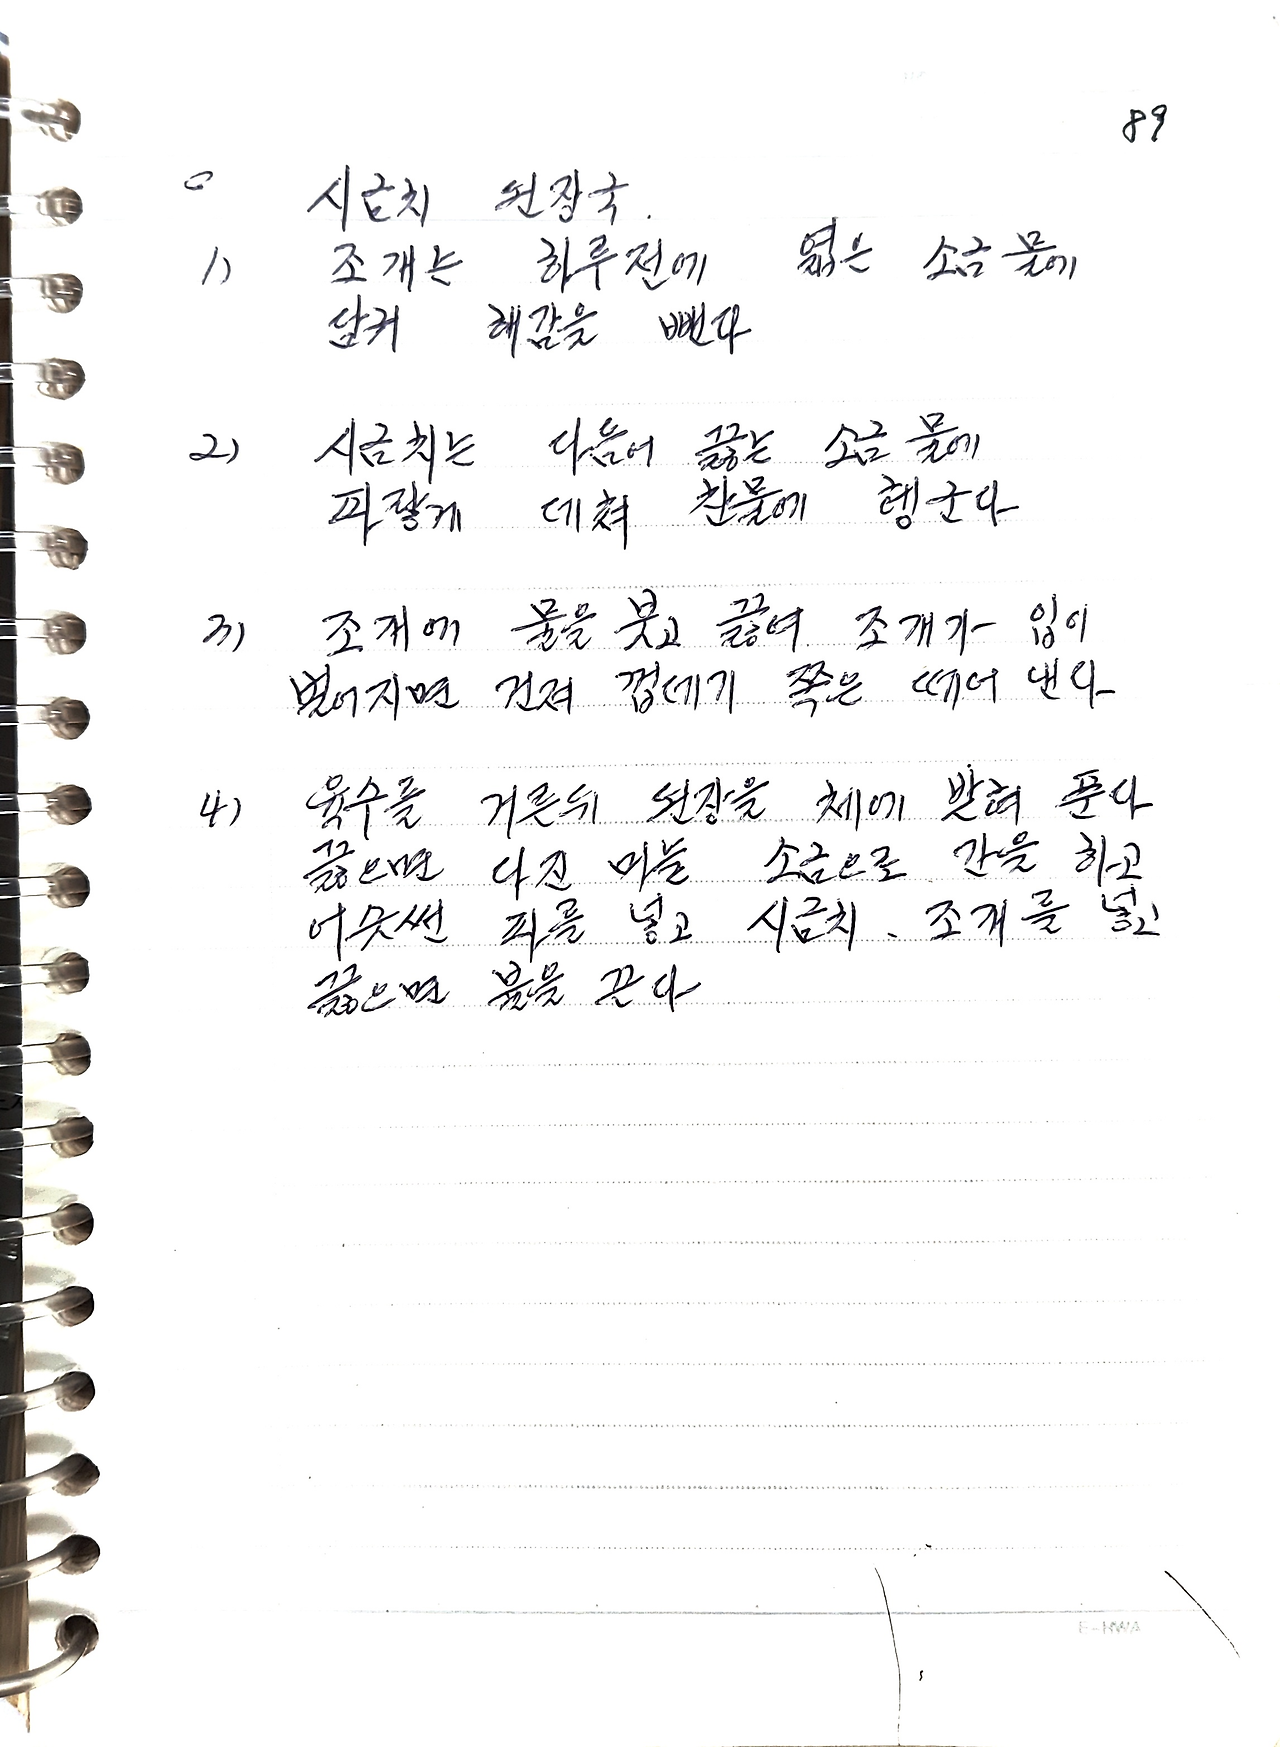 89
○ 시금치 된장국.
1) 조개는 하루전에 엷은 소금물에
담궈 해감을 뺀다
2) 시금치는 다듬어 끓는 소금물에
파랗게 데쳐 찬물에 헹군다
3) 조개에 물을 붓고 끓여 조개가 입이
벌어지면 건져 껍데기 쪽은 떼어 낸다
4) 육수를 거른뒤 된장을 체에 밭혀 푼다
끓으면 다진 마늘 소금으로 간을 하고
어슷썬 파를 넣고 시금치. 조개를 넣고
끓으면 불을 끈다
E-HWA